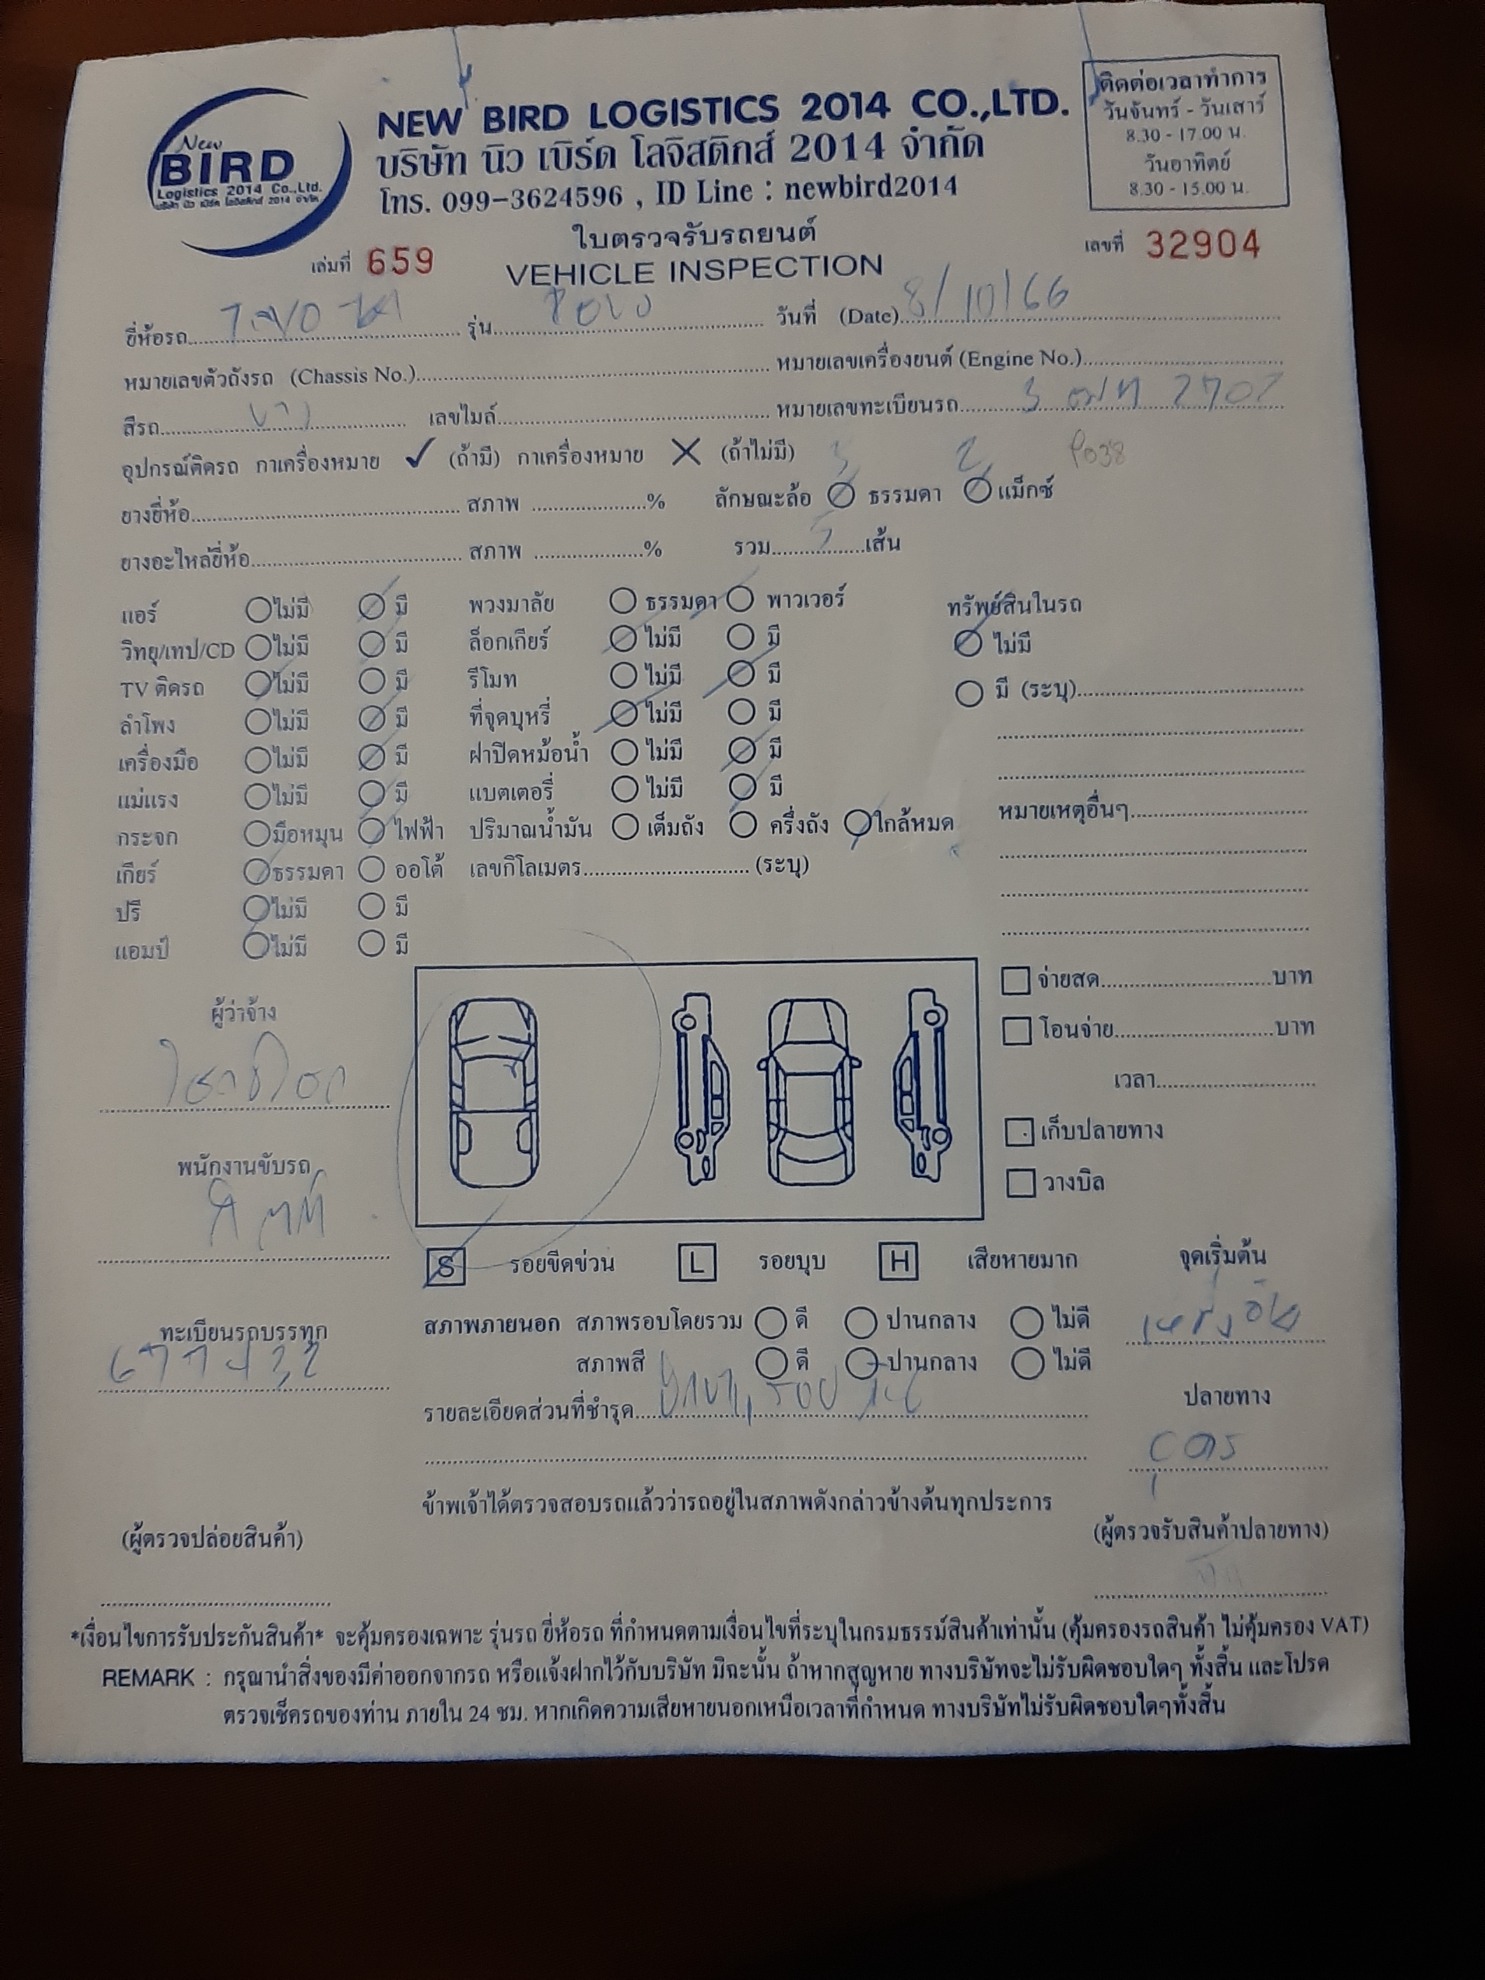 New
BIRD
Logistics 2014 Co.,Ltd.
บริษัท นิว เบิร์ด โลจิสติกส์ 2014 จำกัด
NEW BIRD LOGISTICS 2014 CO.,LTD.
บริษัท นิว เบิร์ด โลจิสติกส์ 2014 จำกัด
โทร. 099-3624596 , ID Line : newbird2014
ติดต่อเวลาทำการ
วันจันทร์ - วันเสาร์
8.30 - 17.00 น.
วันอาทิตย์
8.30 - 15.00 น.
ใบตรวจรับรถยนต์
เล่มที่ 659 VEHICLE INSPECTION เลขที่ 32904
ยี่ห้อรถ รุ่น วันที่ (Date) 8/10/66
หมายเลขตัวถังรถ (Chassis No.) หมายเลขเครื่องยนต์ (Engine No.)
สีรถ เลขไมล์ หมายเลขทะเบียนรถ 3 ฒฑ 2702
อุปกรณ์ติดรถ กาเครื่องหมาย ✓ (ถ้ามี) กาเครื่องหมาย ✕ (ถ้าไม่มี) 3 2
ยางยี่ห้อ สภาพ % ลักษณะล้อ ธรรมดา แม็กซ์
ยางอะไหล่ยี่ห้อ สภาพ % รวม 5 เส้น
แอร์ ไม่มี มี พวงมาลัย ธรรมดา พาวเวอร์ ทรัพย์สินในรถ
วิทยุ/เทป/CD ไม่มี มี ล็อกเกียร์ ไม่มี มี ไม่มี
TV ติดรถ ไม่มี มี รีโมท ไม่มี มี มี (ระบุ)
ลำโพง ไม่มี มี ที่จุดบุหรี่ ไม่มี มี
เครื่องมือ ไม่มี มี ฝาปิดหม้อน้ำ ไม่มี มี
แม่แรง ไม่มี มี แบตเตอรี่ ไม่มี มี หมายเหตุอื่นๆ
กระจก มือหมุน ไฟฟ้า ปริมาณน้ำมัน เต็มถัง ครึ่งถัง ใกล้หมด
เกียร์ ธรรมดา ออโต้ เลขกิโลเมตร (ระบุ)
ปรี ไม่มี มี
แอมป์ ไม่มี มี
จ่ายสด บาท
ผู้ว่าจ้าง
โอนจ่าย บาท
เวลา
เก็บปลายทาง
พนักงานขับรถ
วางบิล
S รอยขีดข่วน L รอยบุบ H เสียหายมาก จุดเริ่มต้น
ทะเบียนรถบรรทุก
สภาพภายนอก สภาพรอบโดยรวม ดี ปานกลาง ไม่ดี
สภาพสี ดี ปานกลาง ไม่ดี
รายละเอียดส่วนที่ชำรุด ปลายทาง
ข้าพเจ้าได้ตรวจสอบรถแล้วว่ารถอยู่ในสภาพดังกล่าวข้างต้นทุกประการ
(ผู้ตรวจปล่อยสินค้า) (ผู้ตรวจรับสินค้าปลายทาง)
*เงื่อนไขการรับประกันสินค้า* จะคุ้มครองเฉพาะ รุ่นรถ ยี่ห้อรถ ที่กำหนดตามเงื่อนไขที่ระบุในกรมธรรม์สินค้าเท่านั้น (คุ้มครองรถสินค้า ไม่คุ้มครอง VAT)
REMARK : กรุณานำสิ่งของมีค่าออกจากรถ หรือแจ้งฝากไว้กับบริษัท มิฉะนั้น ถ้าหากสูญหาย ทางบริษัทจะไม่รับผิดชอบใดๆ ทั้งสิ้น และโปรด
ตรวจเช็ครถของท่าน ภายใน 24 ชม. หากเกิดความเสียหายนอกเหนือเวลาที่กำหนด ทางบริษัทไม่รับผิดชอบใดๆทั้งสิ้น